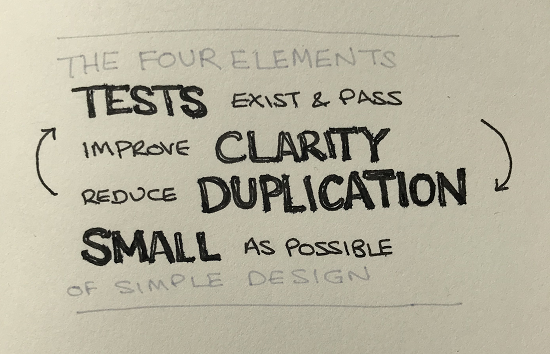 THE FOUR ELEMENTS
TESTS EXIST & PASS
IMPROVE CLARITY
REDUCE DUPLICATION
SMALL AS POSSIBLE
OF SIMPLE DESIGN